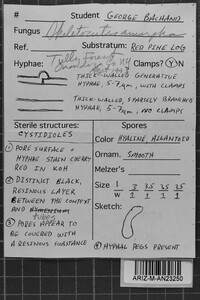 # Student GEORGE BACHAND
Fungus Skeletocutis amorpha
Ref. Substratum: RED PINE LOG
Hyphae: Tully Forest NY Clamps? Y N
THICK-WALLED GENERATIVE
HYPHAE, 5-7 µm, WITH CLAMPS
THICK-WALLED, SPARSELY BRANCHED
HYPHAE, 5-7 µm, NO CLAMPS
Sterile structures: Spores
CYSTIDIOLES
Color HYALINE, ALLANTOID
① PORE SURFACE +
HYPHAE STAIN CHERRY
RED IN KOH
Ornam. SMOOTH
Melzer's
② DISTINCT BLACK,
RESINOUS LAYER
BETWEEN THE CONTEXT
AND TUBES
Size l 3 3.5 3.5 3.5
w 1 1
Sketch:
③ PORES APPEAR TO
BE COVERED WITH
A RESINOUS SUBSTANCE
④ HYPHAL PEGS PRESENT
ARIZ-M-AN23250